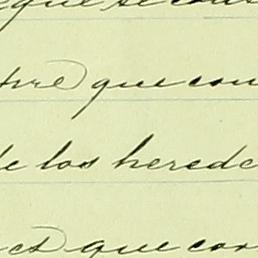 que se cons
tre que con
de los herede
ces que con